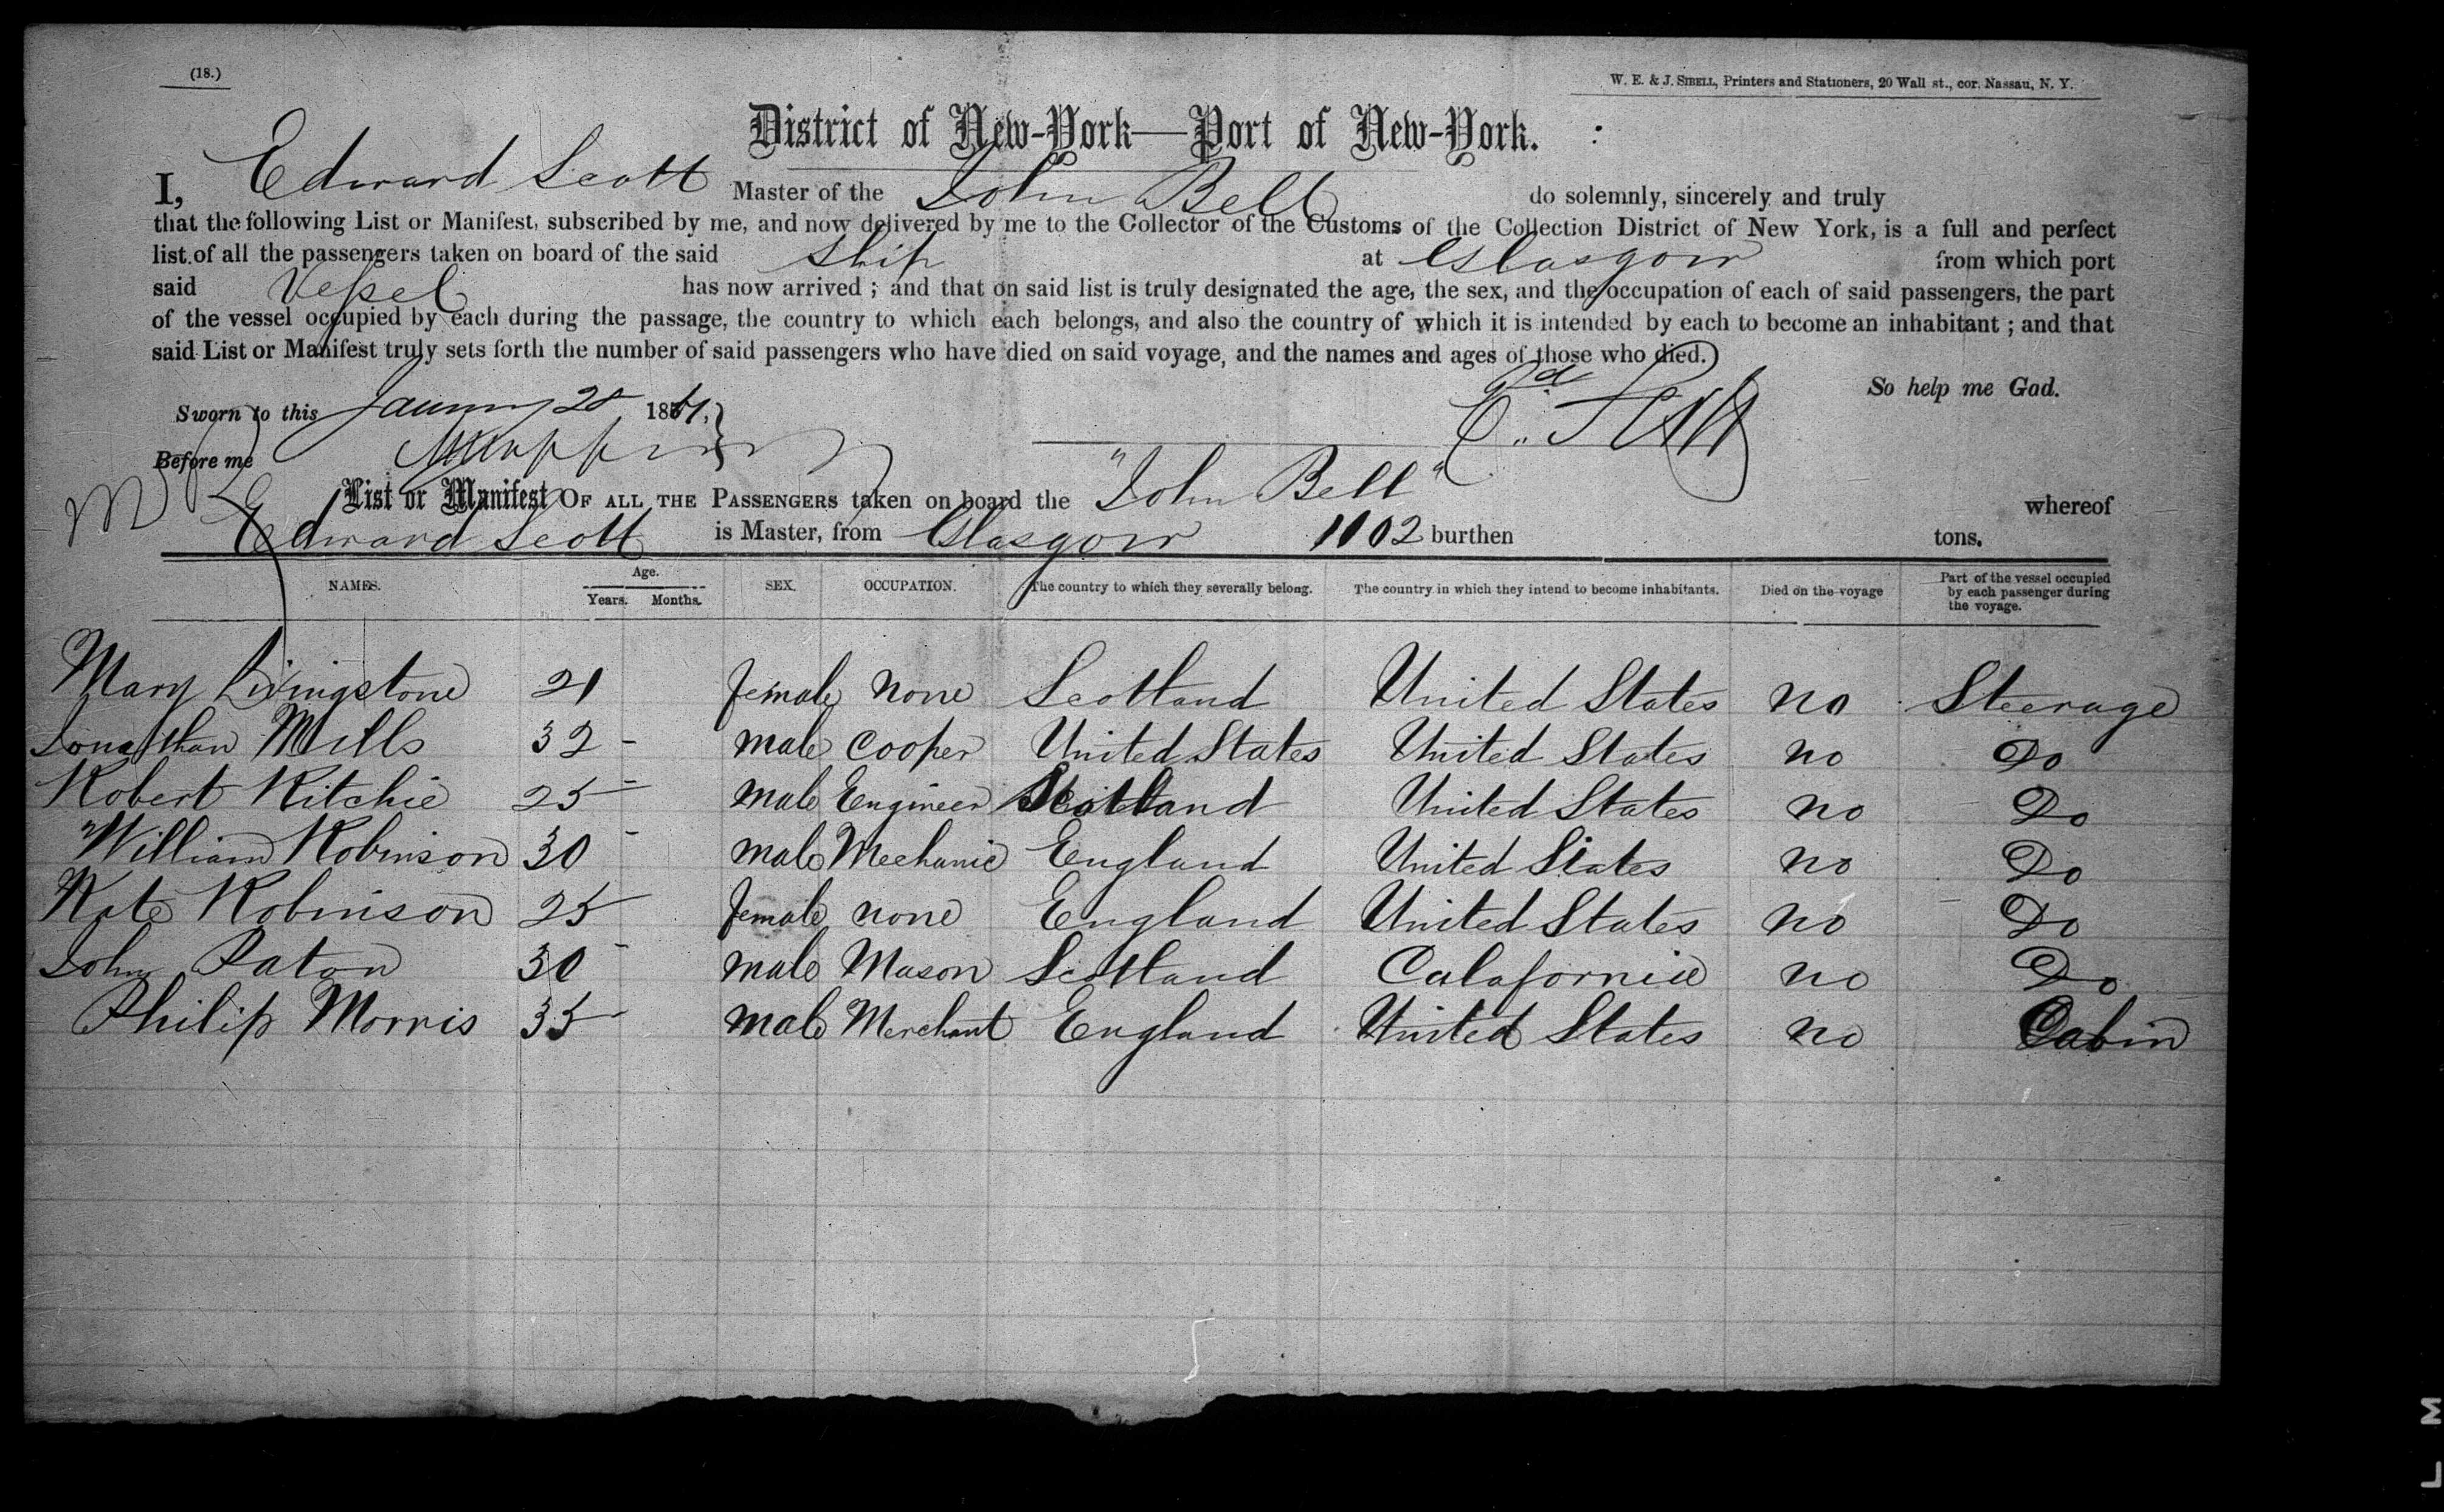 (18.)
W. E. & J. SIBELL, Printers and Stationers, 20 Wall st., cor. Nassau, N. Y.
District of New-York—Port of New-York.
I, Edward Scott Master of the John Bell do solemnly, sincerely and truly
that the following List or Manifest, subscribed by me, and now delivered by me to the Collector of the Customs of the Collection District of New York, is a full and perfect
list of all the passengers taken on board of the said Ship at Glasgow from which port
said Vessel has now arrived ; and that on said list is truly designated the age, the sex, and the occupation of each of said passengers, the part
of the vessel occupied by each during the passage, the country to which each belongs, and also the country of which it is intended by each to become an inhabitant ; and that
said List or Manifest truly sets forth the number of said passengers who have died on said voyage, and the names and ages of those who died.
So help me God.
Sworn to this January 28 1861,
Before me
List or Manifest OF ALL THE PASSENGERS taken on board the "John Bell" whereof
Edward Scott is Master, from Glasgow 1102 burthen tons.
NAMES. Age. Years. Months. SEX. OCCUPATION. The country to which they severally belong. The country in which they intend to become inhabitants. Died on the voyage Part of the vessel occupied by each passenger during the voyage.
Mary Livingstone 21 female none Scotland United States no Steerage
Jonathan Mills 32 - male Cooper United States United States no Do
Robert Ritchie 25 - male Engineer Scotland United States no Do
William Robinson 30 - male Mechanic England United States no Do
Kate Robinson 25 - female none England United States no Do
John Paton 30 - male Mason Scotland Calafornia no Do
Philip Morris 35 - male Merchant England United States no Cabin
L M